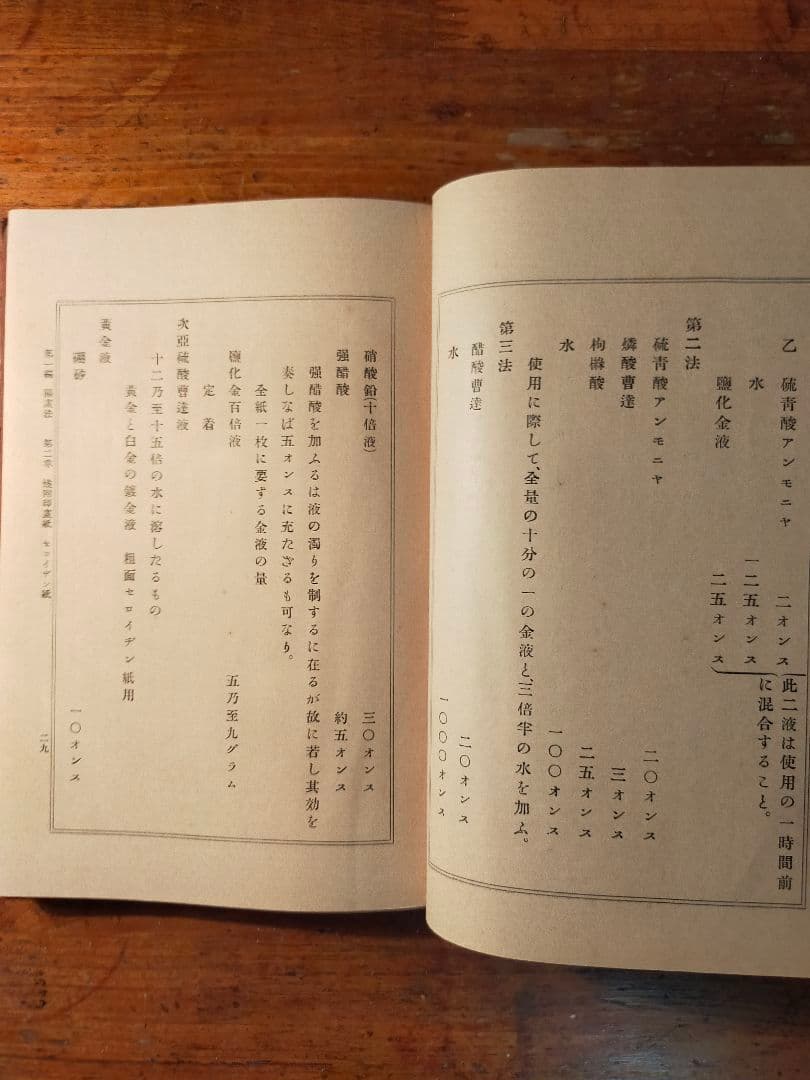 乙 硫青酸アンモニヤ 二オンス
水 一二五オンス
鹽化金液 二五オンス
此二液は使用の一時間前
に混合すること。
第二法
硫青酸アンモニヤ 二〇オンス
燐酸曹達 三オンス
枸櫞酸 二五オンス
水 一〇〇オンス
使用に際して、全量の十分の一の金液と、三倍半の水を加ふ。
第三法
醋酸曹達 二〇オンス
水 一〇〇〇オンス
硝酸鉛(十倍液) 三〇オンス
强醋酸 約五オンス
强醋酸を加ふるは液の濁りを制するに在るが故に若し其効を
奏しなば五オンスに充たざるも可なり。
全紙一枚に要する金液の量
鹽化金百倍液 五乃至九グラム
定着
次亞硫酸曹達液
十二乃至十五倍の水に溶したるもの
黃金と白金の鍍金液 粗面セロイヂン紙用
黃金液
硼砂 一〇オンス
第二章 セロイヂン紙
二九